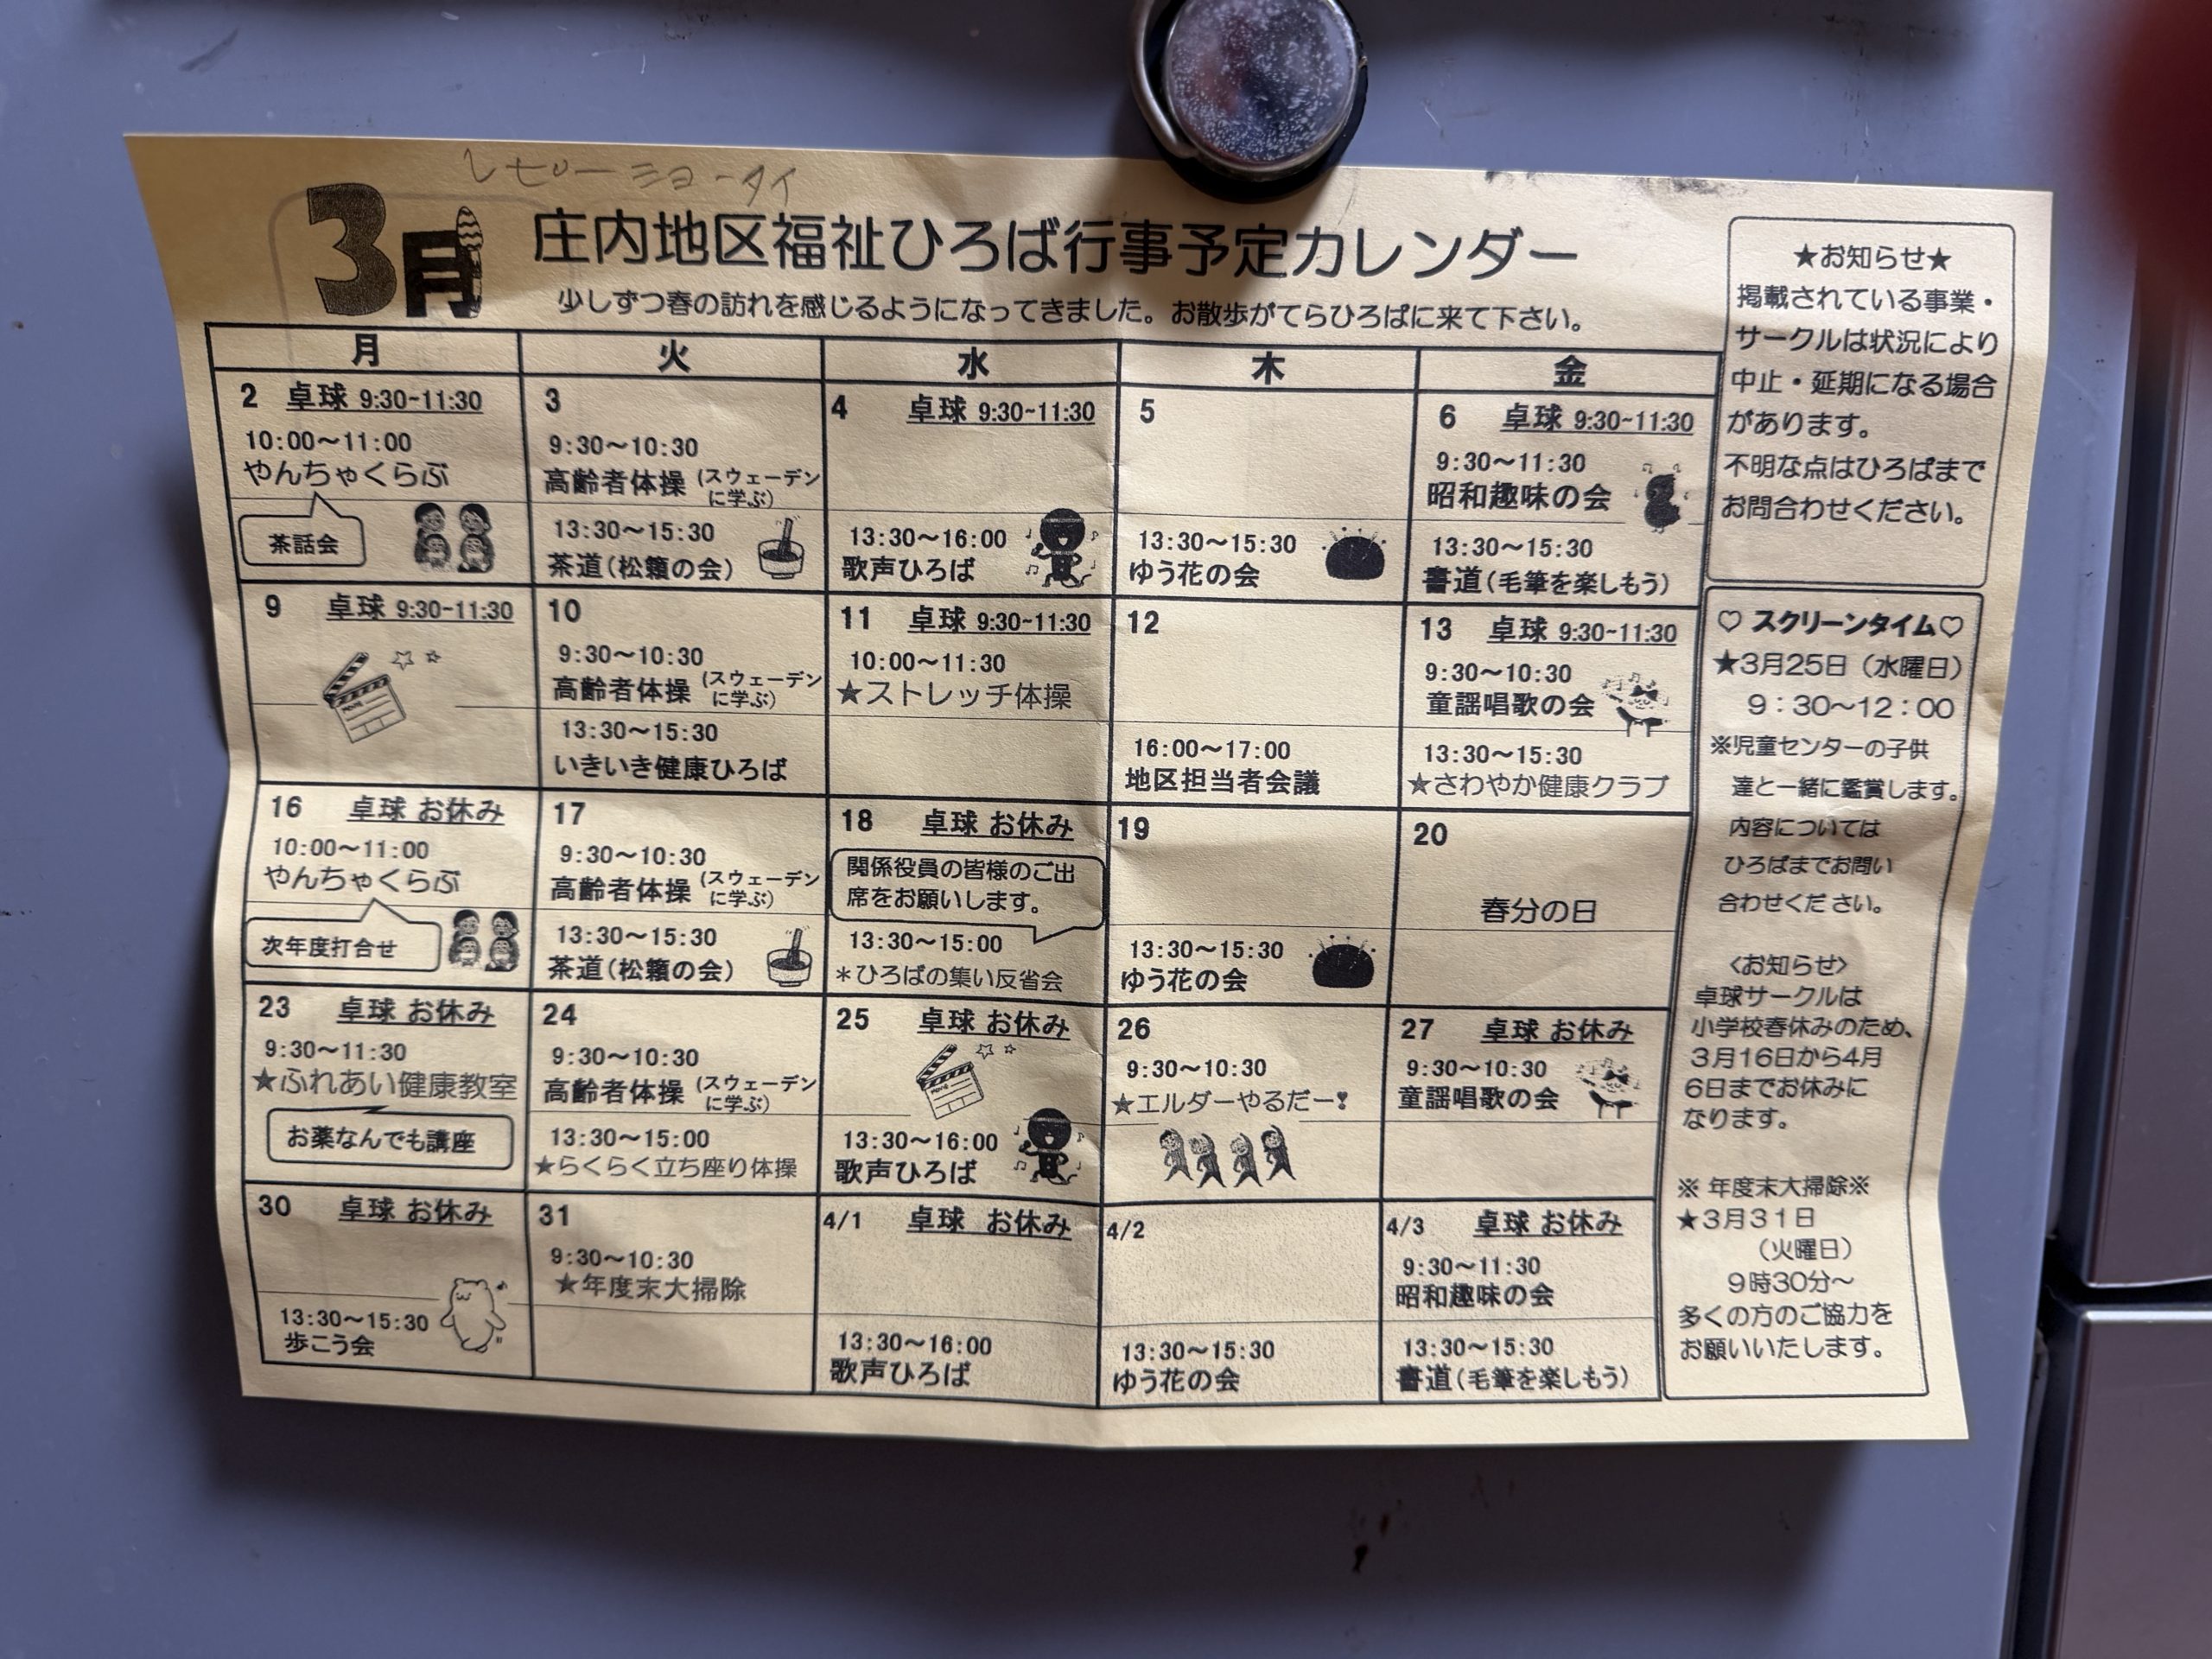 レセロー ミョータイ
3月
庄内地区福祉ひろば行事予定カレンダー
少しずつ春の訪れを感じるようになってきました。お散歩がてらひろばに来て下さい。
月 火 水 木 金
2 卓球 9:30-11:30
10:00〜11:00
やんちゃくらぶ
茶話会
3
9:30〜10:30
高齢者体操 (スウェーデン
に学ぶ)
13:30〜15:30
茶道(松籟の会)
4 卓球 9:30-11:30
13:30〜16:00
歌声ひろば
5
13:30〜15:30
ゆう花の会
6 卓球 9:30-11:30
9:30〜11:30
昭和趣味の会
13:30〜15:30
書道(毛筆を楽しもう)
9 卓球 9:30-11:30
MOVIE
10
9:30〜10:30
高齢者体操 (スウェーデン
に学ぶ)
13:30〜15:30
いきいき健康ひろば
11 卓球 9:30-11:30
10:00〜11:30
★ストレッチ体操
12
16:00〜17:00
地区担当者会議
13 卓球 9:30-11:30
9:30〜10:30
童謡唱歌の会
13:30〜15:30
★さわやか健康クラブ
16 卓球 お休み
10:00〜11:00
やんちゃくらぶ
次年度打合せ
17
9:30〜10:30
高齢者体操 (スウェーデン
に学ぶ)
13:30〜15:30
茶道(松籟の会)
18 卓球 お休み
関係役員の皆様のご出
席をお願いします。
13:30〜15:00
＊ひろばの集い反省会
19
13:30〜15:30
ゆう花の会
20
春分の日
23 卓球 お休み
9:30〜11:30
★ふれあい健康教室
お薬なんでも講座
24
9:30〜10:30
高齢者体操 (スウェーデン
に学ぶ)
13:30〜15:00
★らくらく立ち座り体操
25 卓球 お休み
MOVIE
13:30〜16:00
歌声ひろば
26
9:30〜10:30
★エルダーやるだー❣
27 卓球 お休み
9:30〜10:30
童謡唱歌の会
30 卓球 お休み
13:30〜15:30
歩こう会
31
9:30〜10:30
★年度末大掃除
4/1 卓球 お休み
13:30〜16:00
歌声ひろば
4/2
13:30〜15:30
ゆう花の会
4/3 卓球 お休み
9:30〜11:30
昭和趣味の会
13:30〜15:30
書道(毛筆を楽しもう)
★お知らせ★
掲載されている事業・
サークルは状況により
中止・延期になる場合
があります。
不明な点はひろばまで
お問合わせください。
♡ スクリーンタイム♡
★3月25日（水曜日）
9：30〜12：00
※児童センターの子供
達と一緒に鑑賞します。
内容については
ひろばまでお問い
合わせください。
<お知らせ>
卓球サークルは
小学校春休みのため、
3月16日から4月
6日までお休みに
なります。
※ 年度末大掃除※
★3月31日
（火曜日）
9時30分〜
多くの方のご協力を
お願いいたします。